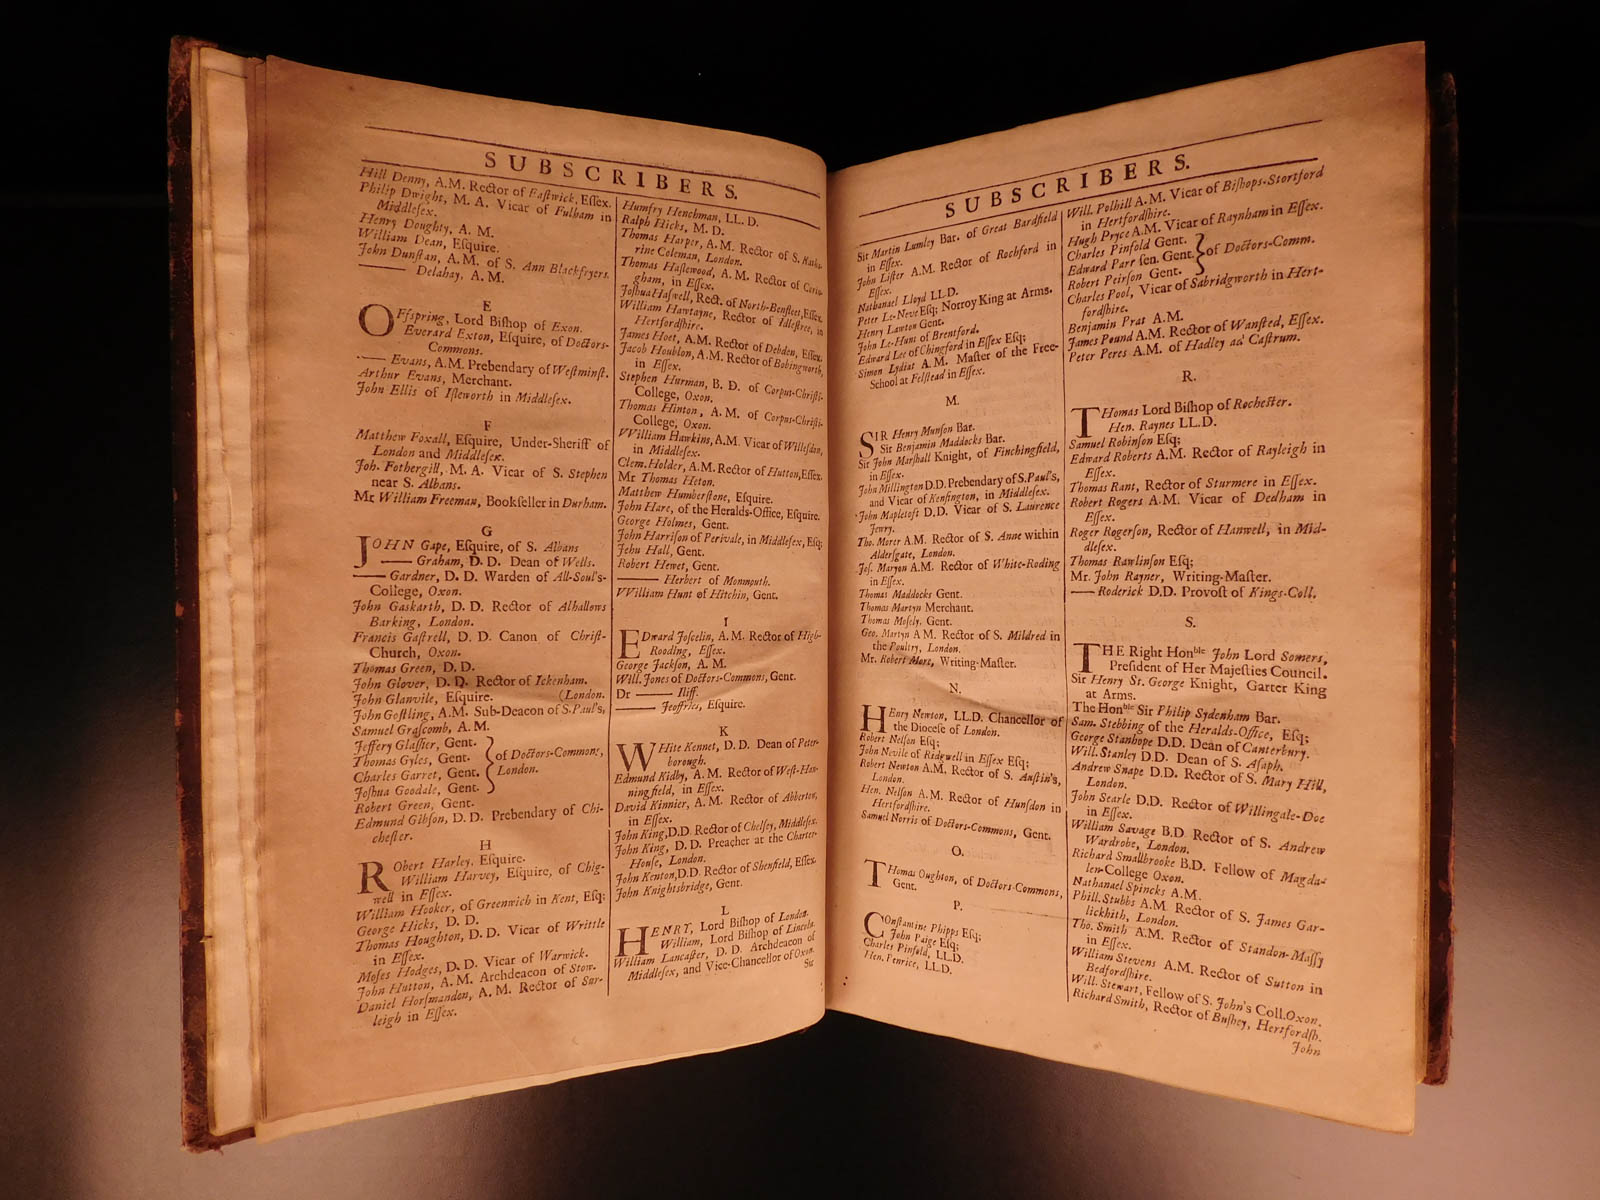 SUBSCRIBERS.
Hill Denny, A.M. Rector of Eaſtwick, Eſſex.
Philip Dwight, M. A. Vicar of Fulham in
Middleſex.
Henry Doughty, A. M.
William Dean, Eſquire.
John Dunſtan, A.M. of S. Ann Blackfryers.
—— Delahay, A.M.
E
OFfspring, Lord Biſhop of Exon.
Everard Exton, Eſquire, of Doctors-
Commons.
—— Evans, A.M. Prebendary of Weſtminſt.
Arthur Evans, Merchant.
John Ellis of Iſleworth in Middleſex.
F
Matthew Foxall, Eſquire, Under-Sheriff of
London and Middleſex.
Joh. Fothergill, M. A. Vicar of S. Stephen
near S. Albans.
Mr. William Freeman, Bookſeller in Durham.
G
JOHN Gape, Eſquire, of S. Albans
—— Graham, D. D. Dean of Wells.
—— Gardner, D. D. Warden of All-Soul's-
College, Oxon.
John Gaskarth, D. D. Rector of Alhallows
Barking, London.
Francis Gaſtrell, D. D. Canon of Chriſt-
Church, Oxon.
Thomas Green, D. D.
John Glover, D. D. Rector of Ickenham.
John Glanvile, Eſquire. (London.
John Goſtling, A.M. Sub-Deacon of S. Paul's,
Samuel Graſcomb, A. M.
Jeffery Glaſſier, Gent.
Thomas Gyles, Gent. } of Doctors-Commons,
Charles Garret, Gent. London.
Joſhua Goodale, Gent.
Robert Green, Gent.
Edmund Gibſon, D. D. Prebendary of Chi-
cheſter.
H
RObert Harley, Eſquire.
William Harvey, Eſquire, of Chig-
well in Eſſex.
William Hooker, of Greenwich in Kent, Eſq;
George Hicks, D. D.
Thomas Houghton, D. D. Vicar of Writtle
in Eſſex.
Moſes Hodges, D. D. Vicar of Warwick.
John Hutton, A. M. Archdeacon of Stow.
Daniel Horſmanden, A. M. Rector of Sur-
leigh in Eſſex.
Humfry Henchman, LL. D.
Ralph Hicks, M. D.
Thomas Harper, A.M. Rector of S. Kathe-
rine Coleman, London.
Thomas Haſlewood, A.M. Rector of
gham, in Eſſex.
Joſhua Haſwell, Rect. of North-Benfleet, Eſſex.
William Hawtayne, Rector of Idleſtree, in
Hertfordſhire.
James Hoet, A.M. Rector of Debden, Eſſex.
Jacob Houblon, A.M. Rector of Bobingworth,
in Eſſex.
Stephen Hurman, B. D. of Corpus-Chriſti-
College, Oxon.
Thomas Hinton, A. M. of Corpus-Chriſti-
College, Oxon.
William Hawkins, A.M. Vicar of Willeſdon,
in Middleſex.
Clem. Holder, A.M. Rector of Hutton, Eſſex.
Mr Thomas Heton.
Matthew Humberſtone, Eſquire.
John Hare, of the Heralds-Office, Eſquire.
George Holmes, Gent.
John Harriſon of Perivale, in Middleſex, Eſq;
Jehu Hall, Gent.
Robert Hewet, Gent.
—— Herbert of Monmouth.
William Hunt of Hitchin, Gent.
I
EDward Joſcelin, A.M. Rector of High-
Rooding, Eſſex.
George Jackſon, A. M.
Will. Jones of Doctors-Commons, Gent.
Dr —— Iliff.
—— Jeoffries, Eſquire.
K
WHite Kennet, D. D. Dean of Peter-
borough.
Edmund Kidby, A. M. Rector of West-Han-
ningfield, in Eſſex.
David Kinnier, A. M. Rector of Abberton,
in Eſſex.
John King, D.D. Rector of Chelſey, Middleſex.
John King, D. D. Preacher at the Charter-
Houſe, London.
John Kenton, D.D. Rector of Shenfield, Eſſex.
John Knightsbridge, Gent.
L
HENRY, Lord Biſhop of London.
William, Lord Biſhop of Lincoln.
William Lancaſter, D. D. Archdeacon of
Middleſex, and Vice-Chancellor of Oxon.
Sir
SUBSCRIBERS.
Sir Martin Lumley Bar. of Great Bardfield
in Eſſex.
John Liſter A.M. Rector of Rochford in
Eſſex.
Nathanael Lloyd LL.D.
Peter Le-Neve Eſq; Norroy King at Arms.
Henry Lawton Gent.
John Le-Hunt of Brentford.
Edward Lee of Chingford in Eſſex Eſq;
Simon Lydiat A. M. Maſter of the Free-
School at Felſtead in Eſſex.
M.
SIR Henry Munſon Bar.
Sir Benjamin Maddocks Bar.
Sir John Marſhall Knight, of Finchingfield,
in Eſſex.
John Millington D.D. Prebendary of S. Paul's,
and Vicar of Kenſington, in Middleſex.
John Mapletoft D.D. Vicar of S. Laurence
Jewry.
Tho. Morer A.M. Rector of S. Anne within
Alderſgate, London.
Joſ. Maryon A.M. Rector of White-Roding
in Eſſex.
Thomas Maddocks Gent.
Thomas Martyn Merchant.
Thomas Moſely, Gent.
Geo. Martyn A.M. Rector of S. Mildred in
the Poultry, London.
Mr. Robert Mors, Writing-Maſter.
N.
HEnry Newton, LL.D. Chancellor of
the Dioceſe of London.
Robert Nelſon Eſq;
John Nevile of Ridgwell in Eſſex Eſq;
Robert Newton A.M. Rector of S. Auſtin's,
London.
Hen. Nelſon A.M. Rector of Hunſdon in
Hertfordſhire.
Samuel Norris of Doctors-Commons, Gent.
O.
THomas Oughton, of Doctors-Commons,
Gent.
P.
COnſtantine Phipps Eſq;
John Paige Eſq;
Charles Pinfold, LL.D.
Hen. Penrice, LL.D.
Will. Polhill A.M. Vicar of Biſhops-Stortford
in Hertfordſhire.
Hugh Pryce A.M. Vicar of Raynham in Eſſex.
Charles Pinfold Gent.
Edward Parr ſen. Gent. } of Doctors-Comm.
Robert Peirſon Gent.
Charles Pool, Vicar of Sabridgworth in Hert-
fordſhire.
Benjamin Prat A.M.
James Pound A.M. Rector of Wanſted, Eſſex.
Peter Peres A.M. of Hadley ad Caſtrum.
R.
THomas Lord Biſhop of Rocheſter.
Hen. Raynes LL.D.
Samuel Robinſon Eſq;
Edward Roberts A.M. Rector of Rayleigh in
Eſſex.
Thomas Rant, Rector of Sturmere in Eſſex.
Robert Rogers A.M. Vicar of Dedham in
Eſſex.
Roger Rogerſon, Rector of Hanwell, in Mid-
dleſex.
Thomas Rawlinſon Eſq;
Mr. John Rayner, Writing-Maſter.
—— Roderick D.D. Provoſt of Kings-Coll.
S.
THE Right Honble John Lord Somers,
Preſident of Her Majeſties Council.
Sir Henry St. George Knight, Garter King
at Arms.
The Honble Sir Philip Sydenham Bar.
Sam. Stebbing of the Heralds-Office, Eſq;
George Stanhope D.D. Dean of Canterbury.
Will. Stanley D.D. Dean of S. Aſaph.
Andrew Snape D.D. Rector of S. Mary Hill,
London.
John Searle D.D. Rector of Willingale-Doe
in Eſſex.
William Savage B.D. Rector of S. Andrew
Wardrobe, London.
Richard Smallbrooke B.D. Fellow of Magda-
len-College Oxon.
Nathanael Spincks A.M.
Phill. Stubbs A.M. Rector of S. James Gar-
lickhith, London.
Tho. Smith A.M. Rector of Standon-Maſſy
in Eſſex.
William Stevens A.M. Rector of Sutton in
Bedfordſhire.
Will. Stewart, Fellow of S. John's Coll. Oxon.
Richard Smith, Rector of Buſhey, Hertfordſh.
John